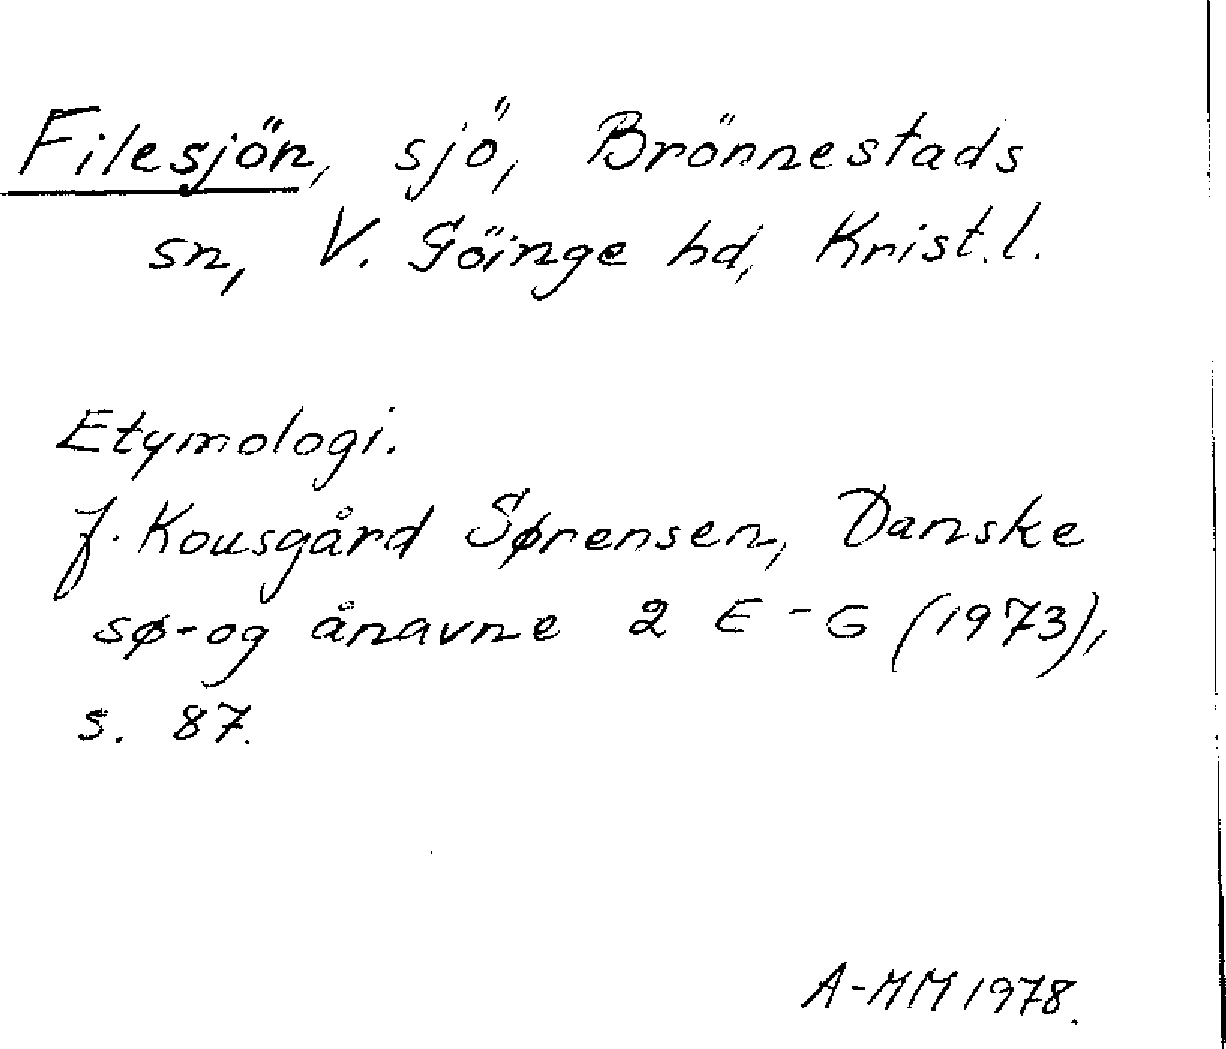 Filesjön, sjö, Brönnestads
sn, V. Göinge hd, Krist. l.
Etymologi.
J. Kousgård Sørensen, Danske
sø- og ånavne 2 E - G (1973),
s. 87.
A-MM 1978.